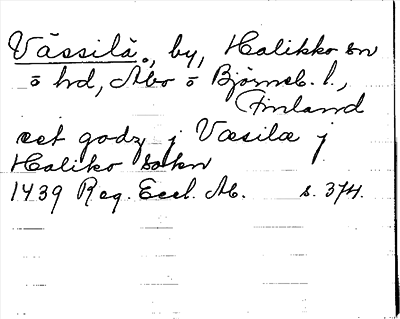 Vässilä, by, Halikko sn
o hd, Åbo o Björneb. l.,
Finland
eet godz j Væsilæ j
Haliko sokn
1439 Reg. Eccl. Ab. s. 374.